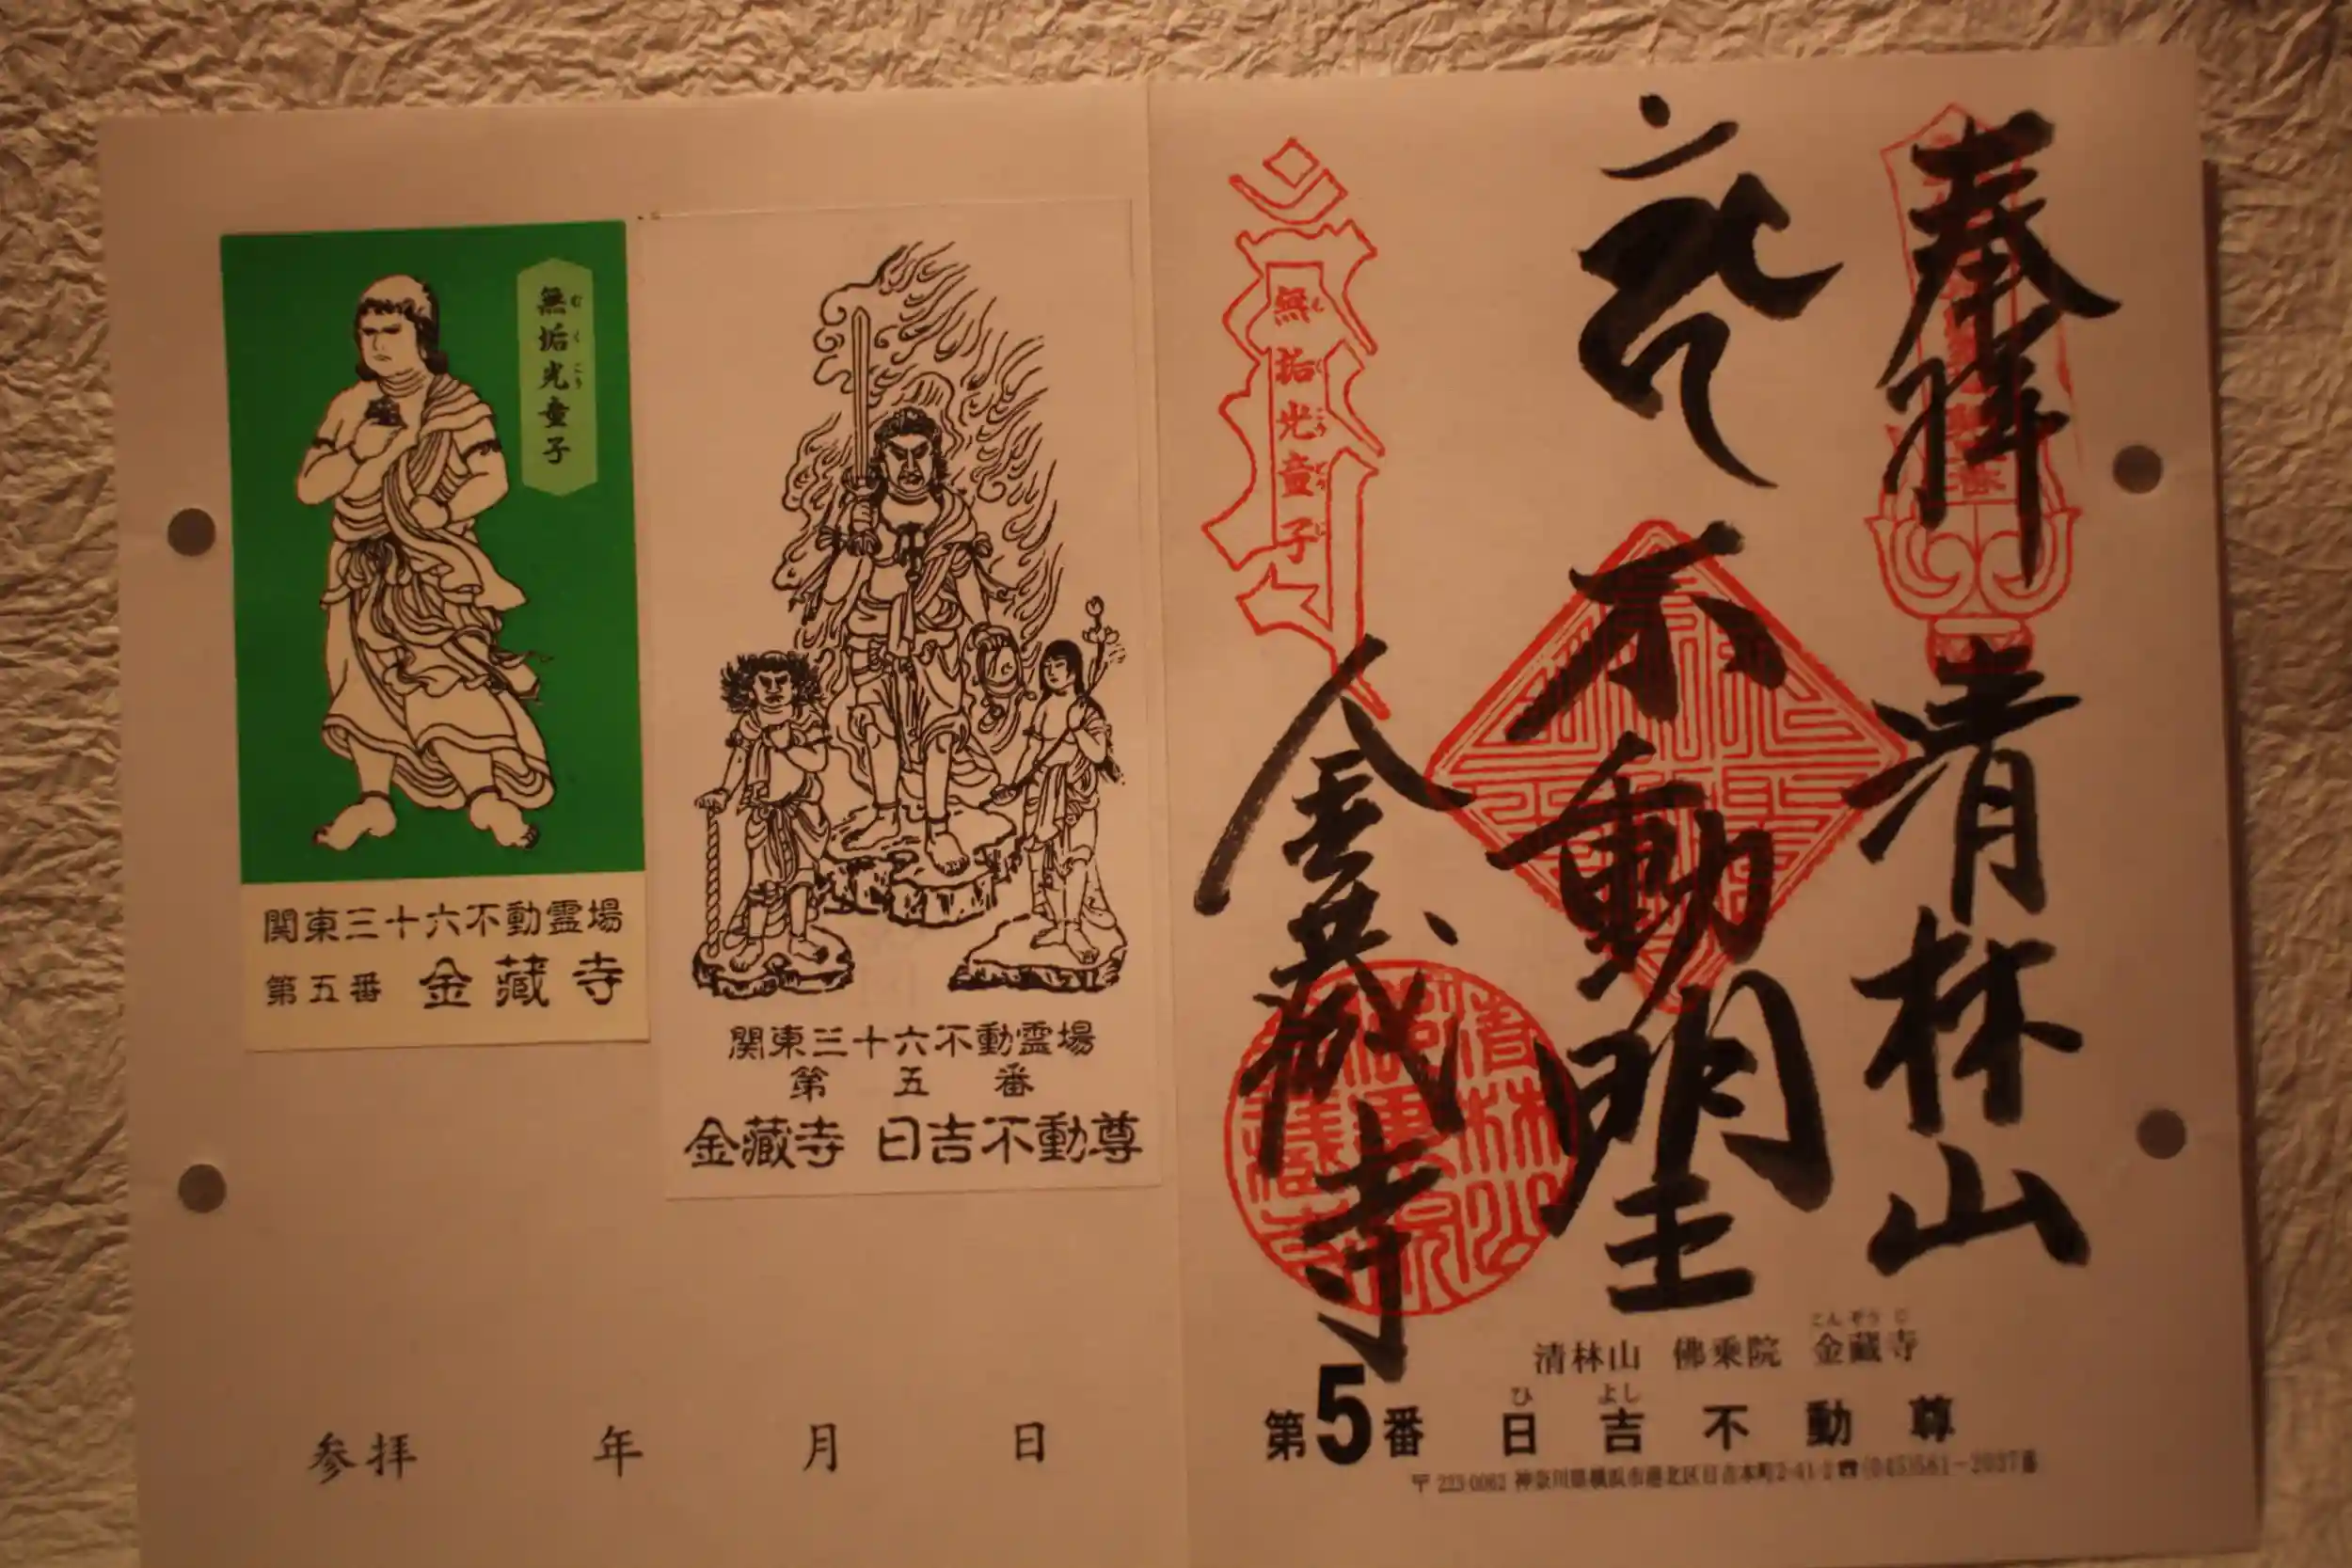 無垢光童子
むくこう
関東三十六不動霊場
第五番 金藏寺
関東三十六不動霊場
第五番
金藏寺 日吉不動尊
参拝 年 月 日
奉拝
清林山
不動明王
金蔵寺
無垢光童子
むくこうどうじ
清林山 佛乗院 金藏寺
こんぞうじ
第5番 日吉不動尊
ひよし
〒223-0062 神奈川県横浜市港北区日吉本町2-41-2☎(045)561-2037番